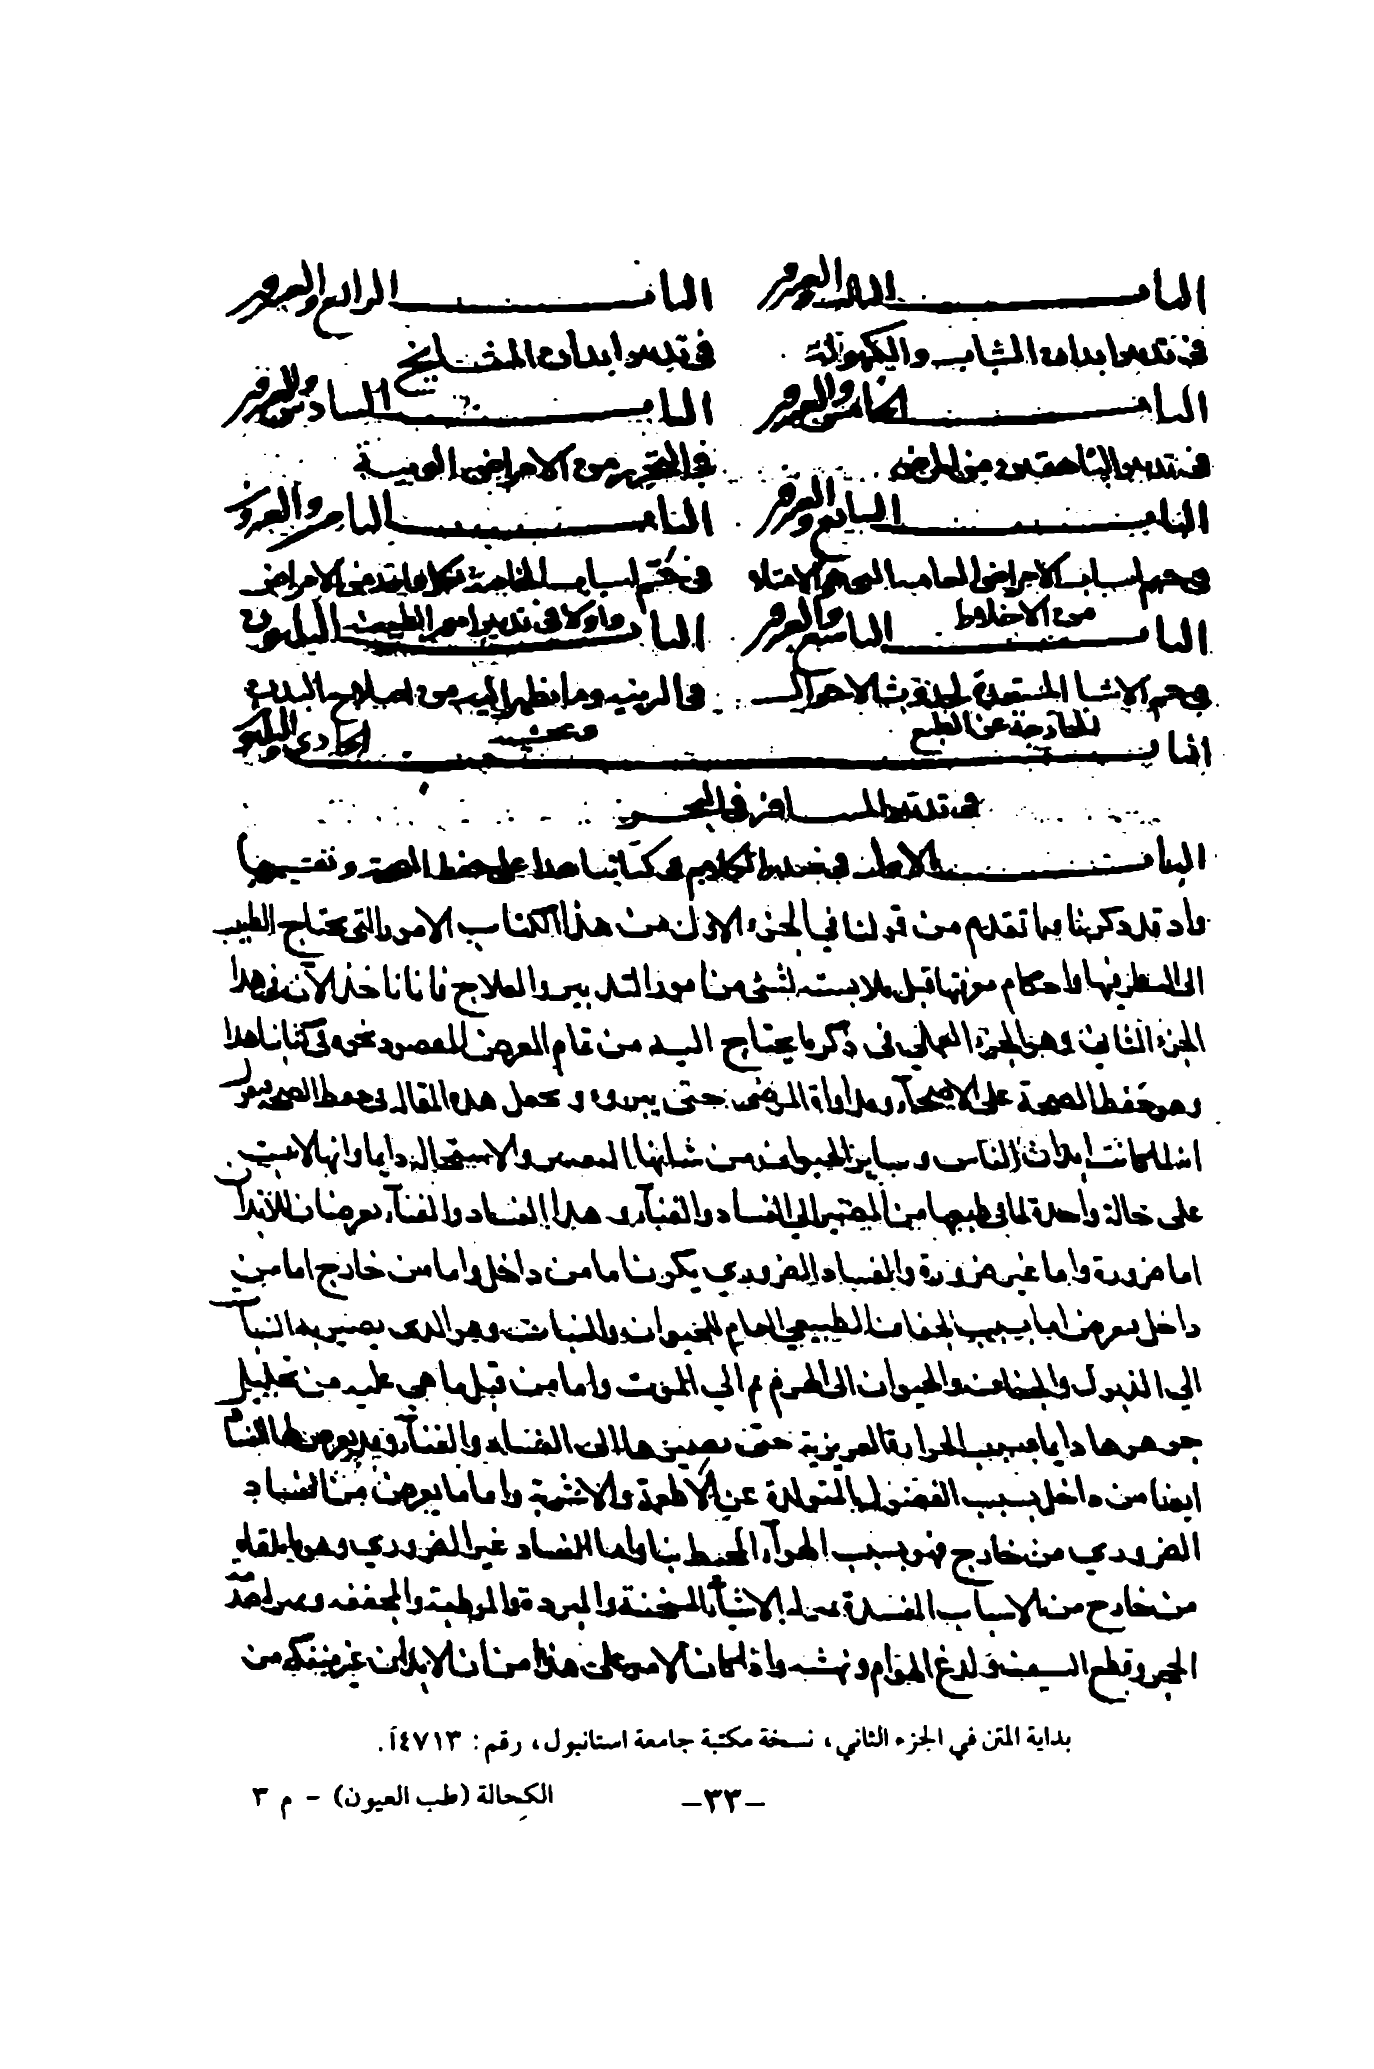 الباب الثالث والعشرون
في تدبير ابدان الشاب والكهولة
الباب الرابع والعشرون
في تدبير ابدان المشايخ
الباب الخامس والعشرون
في تدبير الناهقين من المرض
الباب السادس والعشرون
في التحرز من الامراض الوبيـة
الباب السابع والعشرون
في حسم اسباب الامراض العامية الامتلا
من الاخلاط
الباب الثامن والعشرون
في حسم اسباب الامراض
واولا في تدبير امور الطبيعة
الباب التاسع والعشرون
في حسم الاشيا المستعدة لحدوث الاحوال
الخارجة عن الطبع
الباب الثلثون
في الزينه وما يظهر اليه من اصلاح البدن
الباب الحادي والثلثون
في تدبير المسافر في البحر
الباب الاول في الكلام في كتابنا هذا على حفظ الصحة وتقسيمها
واذ قد ذكرنا بما تقدم من قولنا في الجزء الاول من هذا الكتاب الامور التي يحتاج الطبيب
الى النظر فيها واحكام معرفتها قبل ملابسته لشئ من امور التدبير والعلاج فاننا ناخذ الآن في هذا
الجزء الثاني وهو الجزء العملي في ذكر ما يحتاج اليه من تمام الغرض المقصود نحوه في كتابنا هذا
وهو حفظ الصحة على الاصحاء ومداواة المرضى حتى يبروء ونجعل هذه المقاله في حفظ الصحة فنقول
انه لما كانت ابدان الناس وساير الحيوان من شانها التغير والاستحالة دايما وانها لا تثبت
على حالة واحدة لما في طبعها من المصير الى الفساد والفناء وهذا الفساد والفناء يعرضان للابدان
اما ضرورة واما غير ضرورة والفساد الضروري يكون اما من داخل واما من خارج اما من
داخل يعرض اما بسبب الجفاف الطبيعي العام للحيوان والنبات وهو الذي يصير به النبات
الى الذبول والجفاف والحيوان الى الهرم ثم الى الموت واما من قبل ما هي عليه من تحليل
جوهرها دايما بسبب الحرارة الغريزية حتى يصيرها الى الفساد والفناء وقد يعرض لها الفساد
ايضا من داخل بسبب الفضول المتولدة عن الاطعمة والاشربة واما ما يعرض من الفساد
الضروري من خارج فهو بسبب الهواء المحيط بنا واما الفساد غير الضروري وهو ما يلقاه
من خارج من الاسباب المفسدة مثل الاشياء المسخنة والمبردة والمرطبة والمجففه
الحجر وقطع السيف ولدغ الهوام ونهشه واذا كان الامر على هذا من ان الابدان غير منفكه من
بداية المتن في الجزء الثاني، نسخة مكتبة جامعة استانبول، رقم: ٤٧١٣أ.
-٣٣-
الكحالة (طب العيون) - م ٣